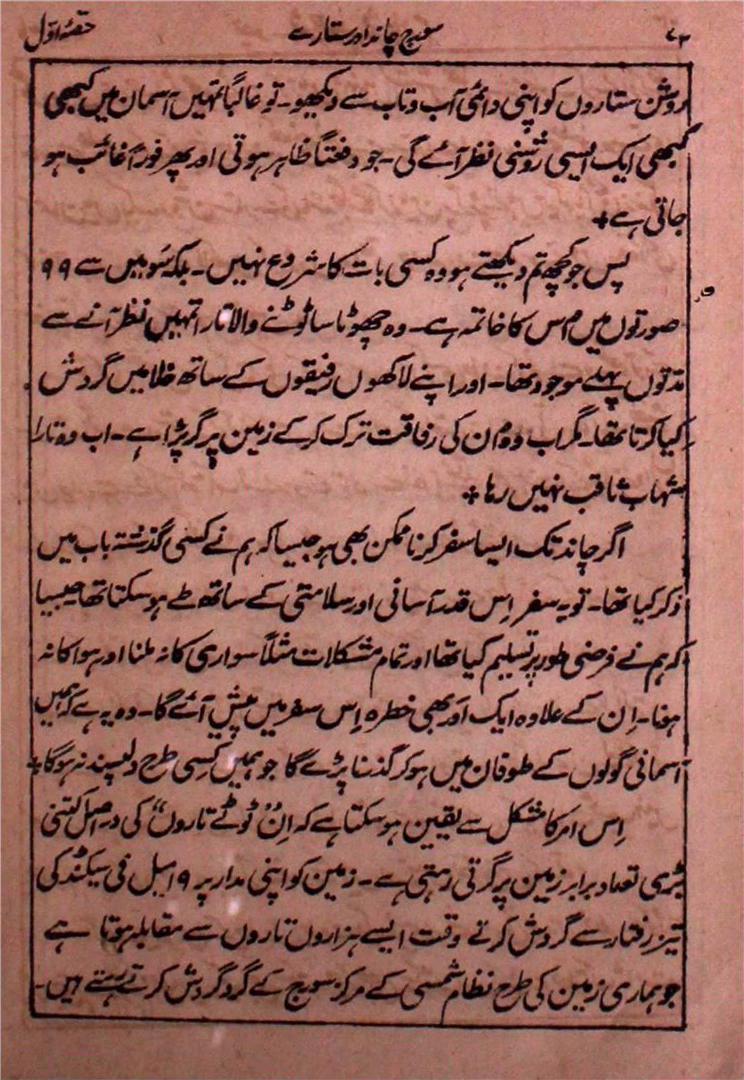 ۷۲ سورج چاند اور ستارے حصۂ اوّل
روشن ستاروں کو اپنی دائمی آب و تاب سے دیکھو۔ تو غالباً تمہیں آسمان میں کبھی
کبھی ایک ایسی روشنی نظر آئے گی۔ جو دفعتاً ظاہر ہوتی اور پھر فوراً غائب ہو
جاتی ہے +
پس جو کچھ تم دیکھتے ہو وہ کسی بات کا شروع نہیں۔ بلکہ سَو میں سے ۹۹
صورتوں میں اُس کا خاتمہ ہے۔ وہ چھوٹا سا ٹوٹنے والا تارا تمہیں نظر آنے سے
مدتوں پہلے موجود تھا۔ اور اپنے لاکھوں رفیقوں کے ساتھ خلا میں گردش
کیا کرتا تھا۔ مگر اب وہ اُن کی رفاقت ترک کر کے زمین پر گر پڑا ہے۔ اب وہ تارا
شہاب ثاقب نہیں رہا +
اگر چاند تک ایسا سفر کرنا ممکن بھی ہو جیسا کہ ہم نے کسی گذشتہ باب میں
ذکر کیا تھا۔ تو یہ سفر اِس قدر آسانی اور سلامتی کے ساتھ طے ہو سکتا تھا جیسا
کہ ہم نے فرضی طور پر تسلیم کیا تھا اور تمام مشکلات مثلاً سواری کا نہ ملنا اور ہوا کا نہ
ہونا۔ اِن کے علاوہ ایک اَور بھی خطرہ اِس سفر میں پیش آئے گا۔ وہ یہ ہے کہ ہمیں
آسمانی گولوں کے طوفان میں ہو کر گذرنا پڑے گا جو ہمیں کسی طرح دلپسند نہ ہوگا +
اِس امر کا مشکل سے یقین ہو سکتا ہے کہ اِن ”ٹوٹے تاروں“ کی دراصل کتنی
بڑی تعداد برابر زمین پر گرتی رہتی ہے۔ زمین کو اپنی مدار پر ۱۹ میل فی سیکنڈ کی
تیز رفتار سے گردش کرتے وقت ایسے ہزاروں تاروں سے مقابلہ ہوتا ہے
جو ہماری زمین کی طرح نظام شمسی کے مرکز سورج کے گرد گردش کرتے رہتے ہیں۔